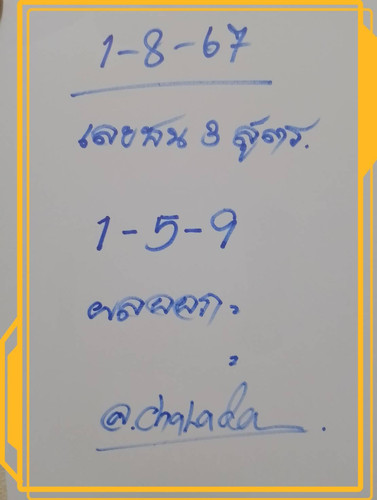 1-8-67
เลขชน 3 สูตร.
1-5-9
ผลออก :
@.chalada